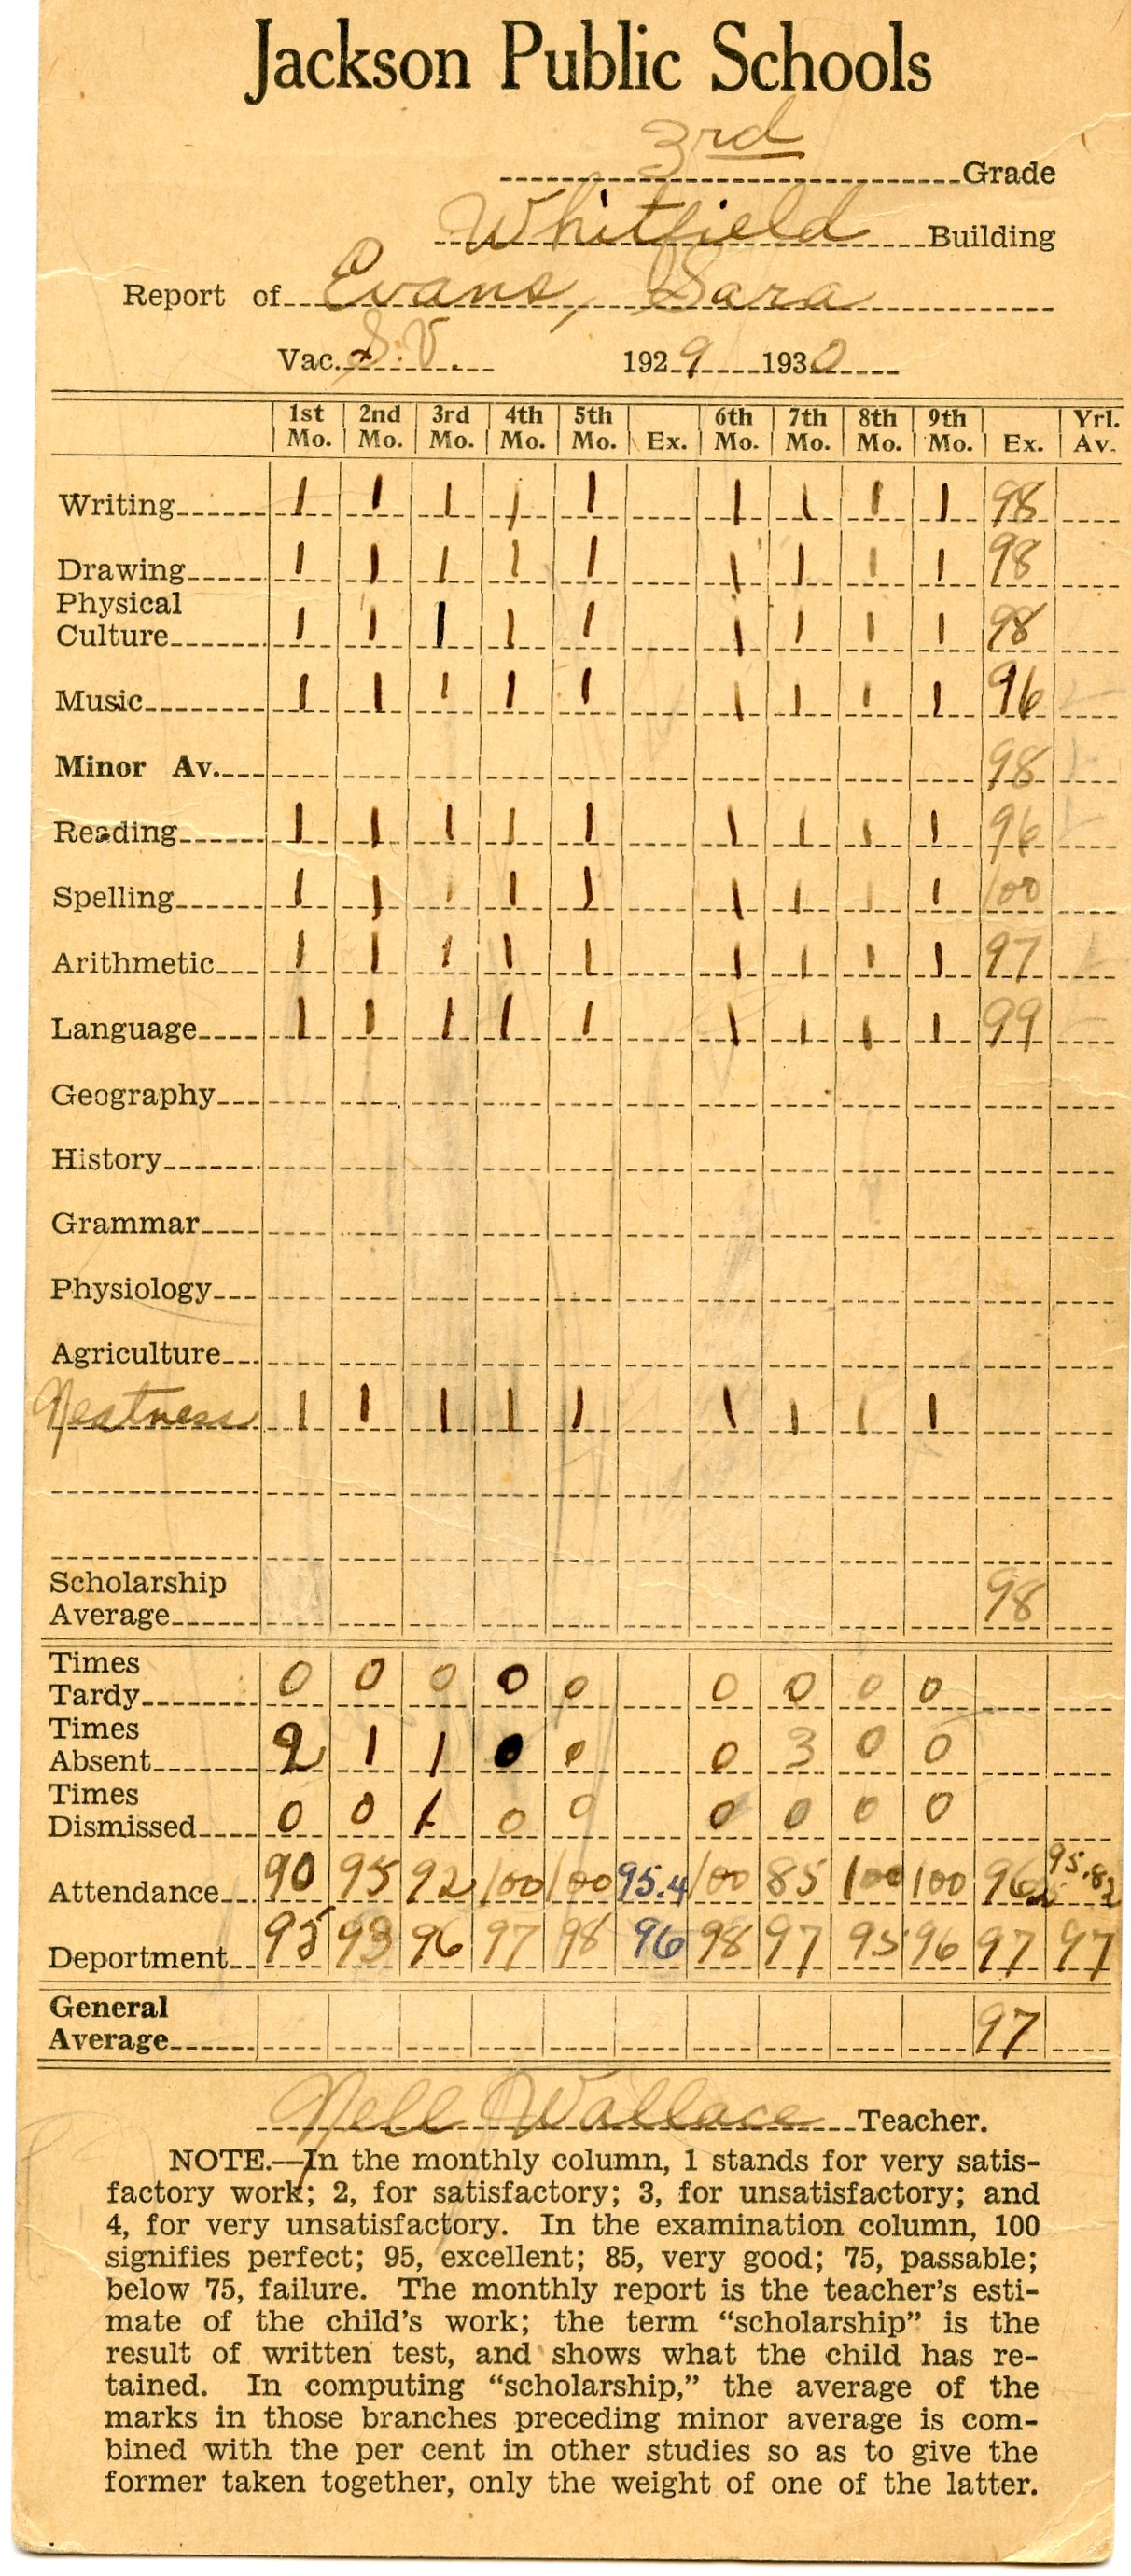 Jackson Public Schools
3rd Grade
Whitfield Building
Report of Evans, Sara
Vac. S.V. 1929 1930
1st Mo. 2nd Mo. 3rd Mo. 4th Mo. 5th Mo. Ex. 6th Mo. 7th Mo. 8th Mo. 9th Mo. Ex. Yrl. Av.
Writing 1 1 1 1 1 1 1 1 1 98
Drawing 1 1 1 1 1 1 1 1 1 98
Physical
Culture 1 1 1 1 1 1 1 1 1 98
Music 1 1 1 1 1 1 1 1 1 96
Minor Av. 98
Reading 1 1 1 1 1 1 1 1 1 96
Spelling 1 1 1 1 1 1 1 1 1 100
Arithmetic 1 1 1 1 1 1 1 1 1 97
Language 1 1 1 1 1 1 1 1 1 99
Geography
History
Grammar
Physiology
Agriculture
Neatness 1 1 1 1 1 1 1 1 1
Scholarship
Average 98
Times
Tardy 0 0 0 0 0 0 0 0 0
Times
Absent 2 1 1 0 0 0 3 0 0
Times
Dismissed 0 0 1 0 0 0 0 0 0
Attendance 90 95 92 100 100 95.4 100 85 100 100 95.82
Deportment 95 93 96 97 98 96 98 97 95 96 97 97
General
Average 97
Nell Wallace Teacher.
NOTE.—In the monthly column, 1 stands for very satis-
factory work; 2, for satisfactory; 3, for unsatisfactory; and
4, for very unsatisfactory. In the examination column, 100
signifies perfect; 95, excellent; 85, very good; 75, passable;
below 75, failure. The monthly report is the teacher's esti-
mate of the child's work; the term "scholarship" is the
result of written test, and shows what the child has re-
tained. In computing "scholarship," the average of the
marks in those branches preceding minor average is com-
bined with the per cent in other studies so as to give the
former taken together, only the weight of one of the latter.